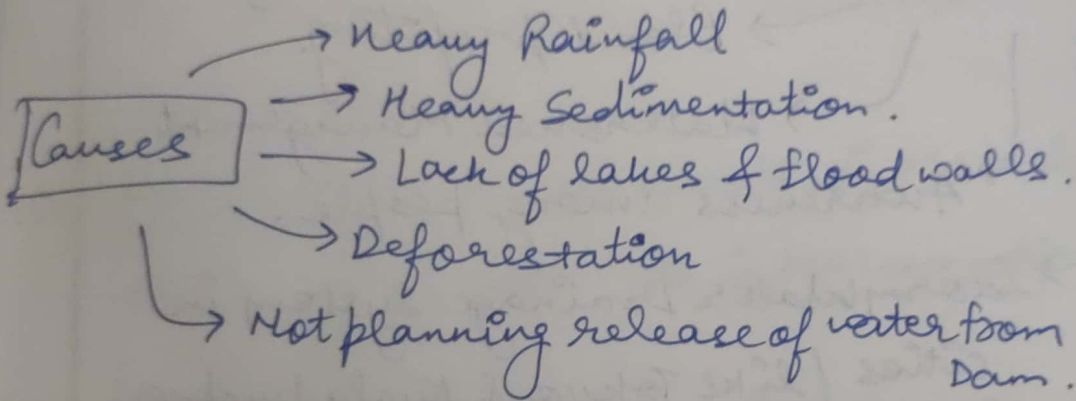 Heavy Rainfall
Heavy Sedimentation.
Causes
Lack of lakes & flood walls.
Deforestation
Not planning release of water from
Dam.